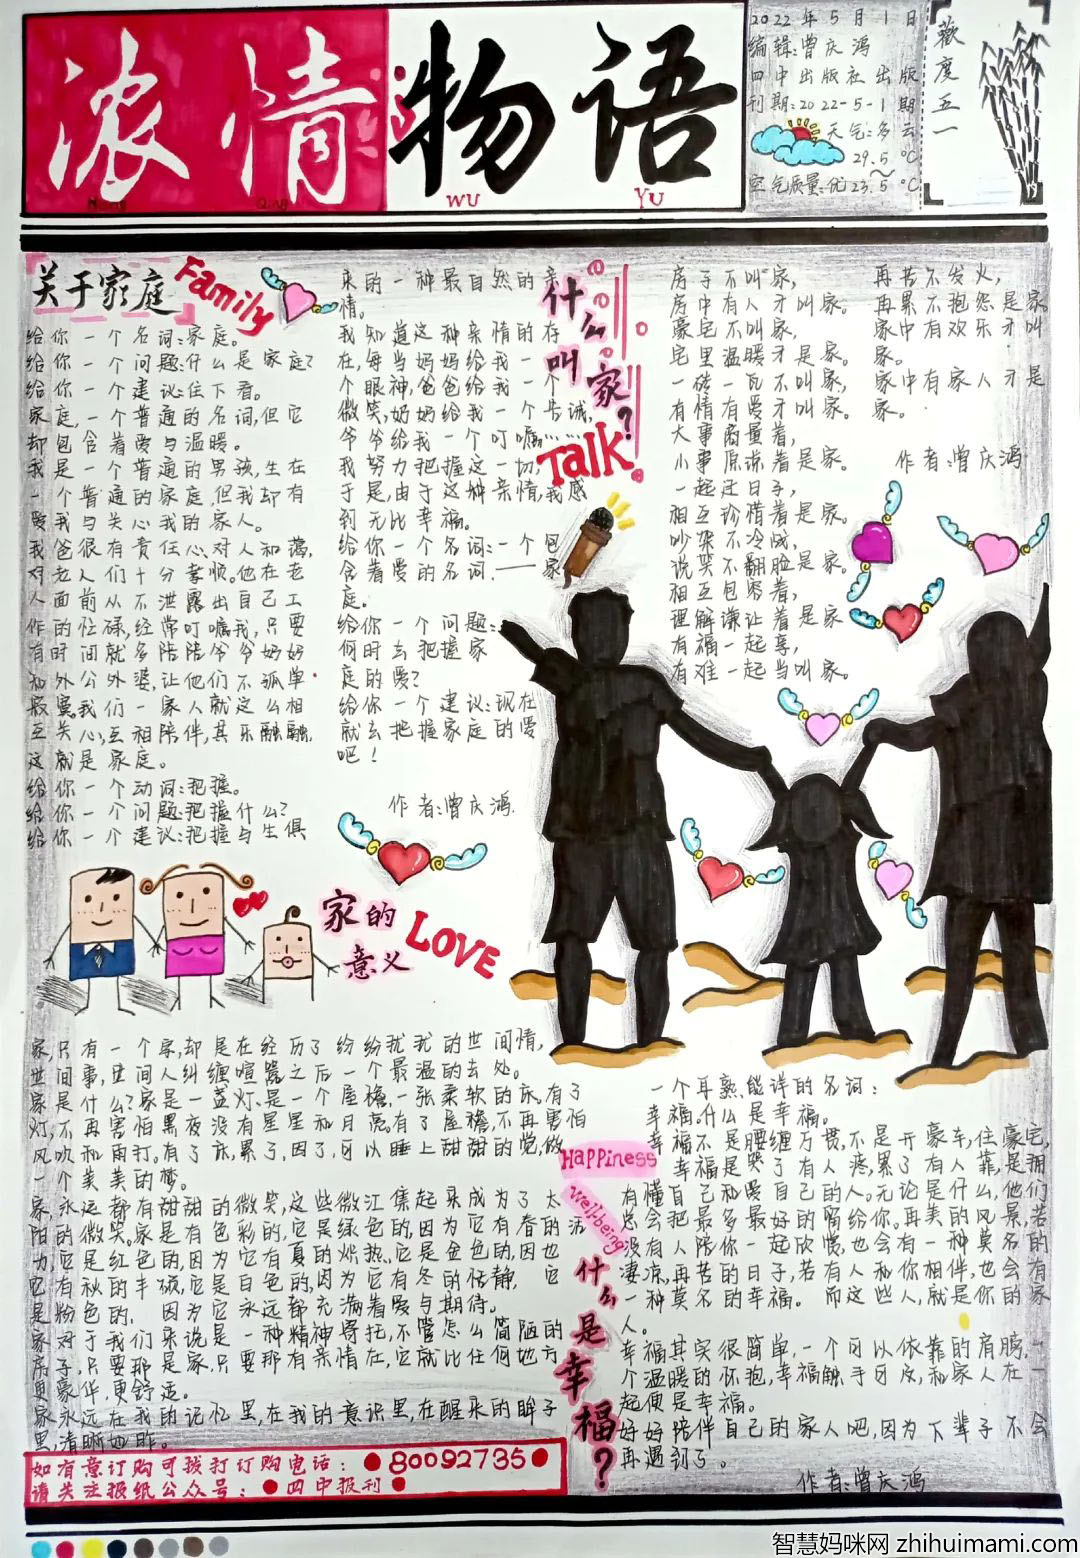 浓情物语
Nong Qing WU YU
2022年5月1日
编辑:曾庆鸿
四中出版社出版
刊期:2022-5-1期
天气:多云
29.5℃
~
空气质量:优 23.5℃
欢度五一
关于家庭
Family
给你一个名词:家庭。
给你一个问题:什么是家庭?
给你一个建议:往下看。
家庭,一个普通的名词,但它
却包含着爱与温暖。
我是一个普通的男孩,生在
一个普通的家庭,但我却有
爱我与关心我的家人。
我爸很有责任心,对人和蔼,
对老人们十分孝顺。他在老
人面前从不泄露出自己工
作的忙碌,经常叮嘱我,只要
有时间就多陪陪爷爷奶奶
和外公外婆,让他们不孤单
寂寞。我们一家人就这么相
互关心,互相陪伴,其乐融融,
这就是家庭。
给你一个动词:把握。
给你一个问题:把握什么?
给你一个建议:把握与生俱
来的一种最自然的亲
情。
我知道这种亲情的存
在,每当妈妈给我一
个眼神,爸爸给我一个
微笑,奶奶给我一个告诫,
爷爷给我一个叮嘱……
我努力把握这一切,
于是,由于这种亲情,我感
到无比幸福。
给你一个名词:一个包
含着爱的名词.——家
庭。
给你一个问题:
何时去把握家
庭的爱?
给你一个建议:现在
就去把握家庭的爱
吧!
作者:曾庆鸿
什么叫家?
Talk
房子不叫家,
房中有人才叫家。
豪宅不叫家,
宅里温暖才是家。
一砖一瓦不叫家,
有情有爱才叫家。
大事商量着,
小事原谅着是家。
一起过日子,
相互珍惜着是家。
吵架不冷战,
说笑不翻脸是家。
相互包容着,
理解谦让着是家
有福一起享,
有难一起当叫家。
再苦不发火,
再累不抱怨是家
家中有欢乐才叫
家。
家中有家人才是
家。
作者:曾庆鸿
家的意义
LOVE
家,只有一个家,却是在经历了纷纷扰扰的世间情,
世间事,世间人纠缠喧嚣之后一个最温的去处。
家是什么?家是一盏灯、是一个屋檐、一张柔软的床。有了
灯,不再害怕黑夜没有星星和月亮。有了屋檐,不再害怕
风吹和雨打。有了床,累了,困了,可以睡上甜甜的觉,做
一个美美的梦。
家,永远都有甜甜的微笑,这些微汇集起来成为了太
阳的微笑。家是有色彩的,它是绿色的,因为它有春的活
力,它是红色的,因为它有夏的炽热、它是金色的,因也
它有秋的丰硕,它是白色的,因为它有冬的恬静, 它
是粉色的, 因为它永远都充满着爱与期待。
家对于我们来说是一种精神寄托,不管怎么简陋的
房子,只要那是家,只要那有亲情在,它就比任何地方
更豪华,更舒适。
家永远在我的记忆里,在我的意识里,在醒来的眸子
里,清晰如昨。
Happiness
well-being
什么是幸福?
一个耳熟能详的名词:
幸福。什么是幸福。
幸福不是腰缠万贯,不是开豪车,住豪宅,
幸福是哭了有人疼,累了有人靠,是拥
有懂自己和爱自己的人。无论是什么,他们
总会把最多最好的留给你。再美的风景,若
没有人陪你一起欣赏,也会有一种莫名的
凄凉,再苦的日子,若有人和你相伴,也会有
一种莫名的幸福。 而这些人,就是你的家
人。
幸福其实很简单,一个可以依靠的肩膀,一
个温暖的怀抱,幸福触手可及,和家人在一
起便是幸福。
好好陪伴自己的家人吧,因为下辈子不会
再遇到了。
作者:曾庆鸿
如有意订购可拨打订购电话: 80092735
请关注报纸公众号: 四中报刊
智慧妈咪网 zhihuimami.com